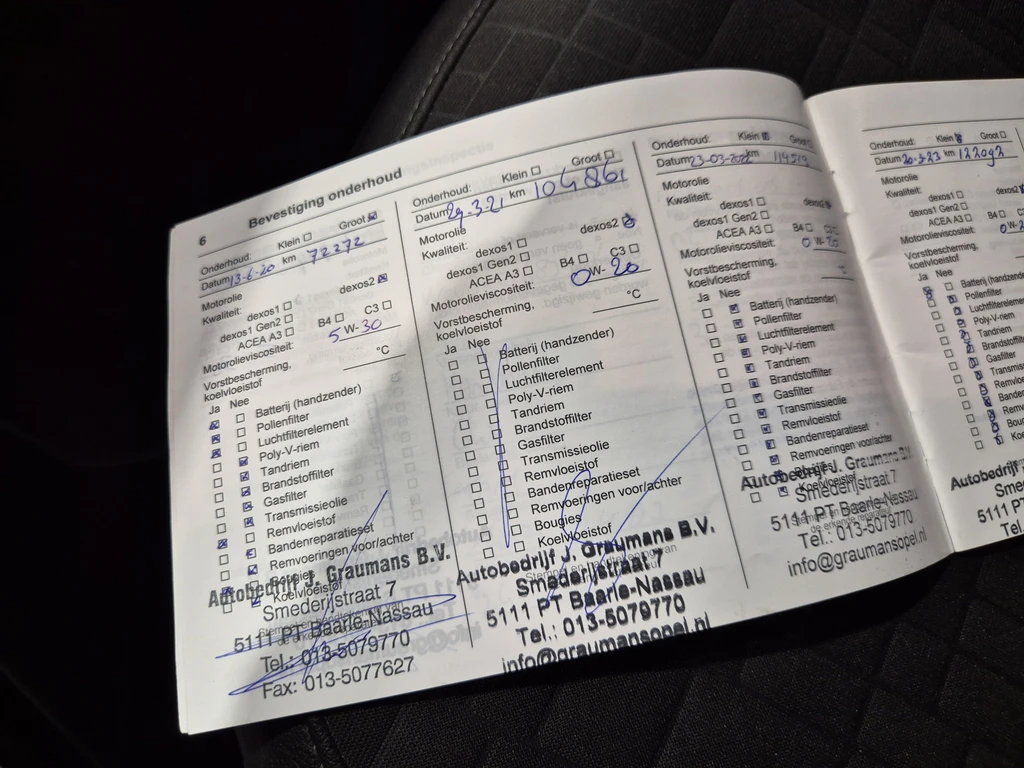 6 Bevestiging onderhoud
Onderhoud: Klein Groot
Datum 13-6-20 km 72272
Motorolie
Kwaliteit: dexos1 dexos2
dexos1 Gen2
ACEA A3 B4 C3
Motorolieviscositeit: 5 W-30
Vorstbescherming,
koelvloeistof °C
Ja Nee
Batterij (handzender)
Pollenfilter
Luchtfilterelement
Poly-V-riem
Tandriem
Brandstoffilter
Gasfilter
Transmissieolie
Remvloeistof
Bandenreparatieset
Remvoeringen voor/achter
Bougies
Koelvloeistof
Autobedrijf J. Graumans B.V.
Smederijstraat 7
5111 PT Baarle-Nassau
Tel.: 013-5079770
Fax: 013-5077627
Onderhoud: Klein Groot
Datum 29-3-21 km 104861
Motorolie
Kwaliteit: dexos1 dexos2
dexos1 Gen2
ACEA A3 B4 C3
Motorolieviscositeit: 0 W-20
Vorstbescherming,
koelvloeistof °C
Ja Nee
Batterij (handzender)
Pollenfilter
Luchtfilterelement
Poly-V-riem
Tandriem
Brandstoffilter
Gasfilter
Transmissieolie
Remvloeistof
Bandenreparatieset
Remvoeringen voor/achter
Bougies
Koelvloeistof
Autobedrijf J. Graumans B.V.
Smederijstraat 7
5111 PT Baarle-Nassau
Tel.: 013-5079770
info@graumansopel.nl
Onderhoud: Klein Groot
Datum 23-03-2022 km
Motorolie
Kwaliteit: dexos1 dexos2
dexos1 Gen2
ACEA A3 B4 C3
Motorolieviscositeit: 0 W-20
Vorstbescherming,
koelvloeistof °C
Ja Nee
Batterij (handzender)
Pollenfilter
Luchtfilterelement
Poly-V-riem
Tandriem
Brandstoffilter
Gasfilter
Transmissieolie
Remvloeistof
Bandenreparatieset
Remvoeringen voor/achter
Bougies
Koelvloeistof
Autobedrijf J. Graumans B.V.
Smederijstraat 7
5111 PT Baarle-Nassau
Tel.: 013-5079770
info@graumansopel.nl
Onderhoud: Klein Groot
Datum 20-3-23 km 122092
Motorolie
Kwaliteit: dexos1 dexos2
dexos1 Gen2
ACEA A3 B4
Motorolieviscositeit: 0 W-2
Vorstbescherming,
koelvloeistof
Ja Nee
Batterij (handzender)
Pollenfilter
Luchtfilterelement
Poly-V-riem
Tandriem
Brandstoffilter
Gasfilter
Transmissie
Remvloeist
Bandenre
Remvoe
Bou
Ko
Autobedrijf J
Smede
5111 PT
Tel.: 01
info